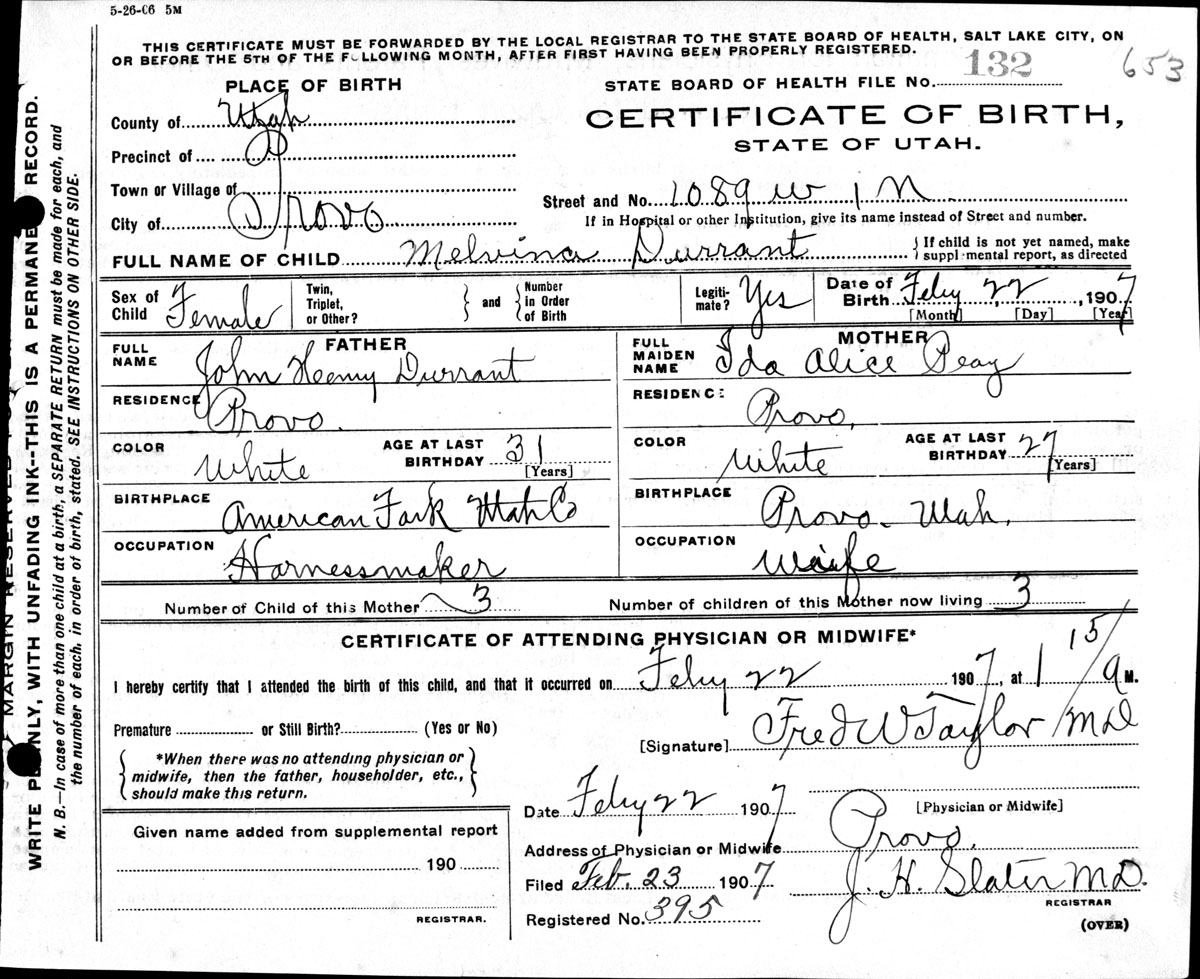 5-26-06 5M
THIS CERTIFICATE MUST BE FORWARDED BY THE LOCAL REGISTRAR TO THE STATE BOARD OF HEALTH, SALT LAKE CITY, ON
OR BEFORE THE 5TH OF THE FOLLOWING MONTH, AFTER FIRST HAVING BEEN PROPERLY REGISTERED.
653
PLACE OF BIRTH
STATE BOARD OF HEALTH FILE No. 132
County of Utah
CERTIFICATE OF BIRTH,
STATE OF UTAH.
Precinct of
Town or Village of
Street and No. 1089 W 1 N
City of Provo
If in Hospital or other Institution, give its name instead of Street and number.
FULL NAME OF CHILD Melvina Durrant
If child is not yet named, make
supplemental report, as directed
Sex of Child Female
Twin, Triplet, or Other?
and
Number in Order of Birth
Legitimate? Yes
Date of Birth Feby 22, 1907
[Month] [Day] [Year]
FATHER
FULL NAME John Henry Durrant
RESIDENCE Provo.
COLOR White
AGE AT LAST BIRTHDAY 31
[Years]
BIRTHPLACE American Fork Utah Co
OCCUPATION Harnessmaker
MOTHER
FULL MAIDEN NAME Ida Alice Peay
RESIDENCE Provo,
COLOR White
AGE AT LAST BIRTHDAY 27
[Years]
BIRTHPLACE Provo - Utah.
OCCUPATION Waife
Number of Child of this Mother 3
Number of children of this Mother now living 3
CERTIFICATE OF ATTENDING PHYSICIAN OR MIDWIFE*
I hereby certify that I attended the birth of this child, and that it occurred on Feby 22 1907, at 1 15/ a M.
Premature or Still Birth? (Yes or No)
[Signature] Fred W Taylor MD
*When there was no attending physician or
midwife, then the father, householder, etc.,
should make this return.
Date Feby 22 1907
[Physician or Midwife]
Address of Physician or Midwife Provo,
Given name added from supplemental report
190
REGISTRAR.
Filed Feb. 23 1907
J. H. Slater MD.
REGISTRAR
Registered No. 395
(OVER)
MARGIN RESERVED
WRITE PLAINLY, WITH UNFADING INK--THIS IS A PERMANENT RECORD.
N. B.—In case of more than one child at a birth, a SEPARATE RETURN must be made for each, and
the number of each, in order of birth, stated. SEE INSTRUCTIONS ON OTHER SIDE.